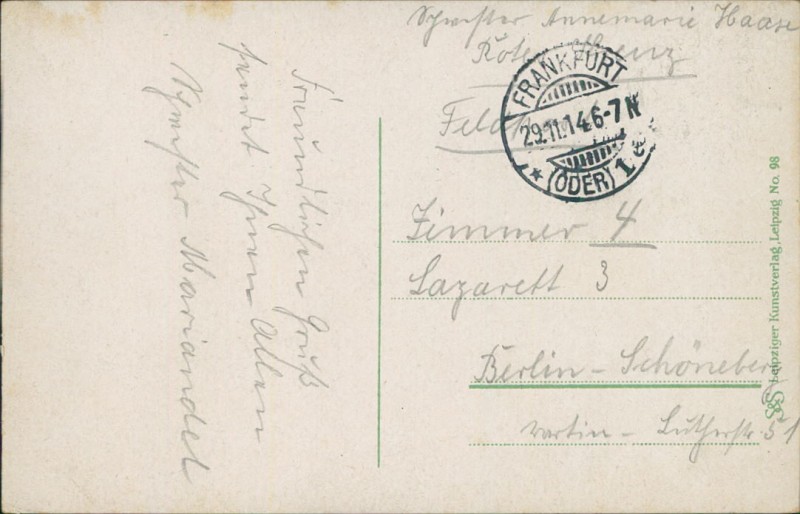 Freundlichen Gruß
sendet Ihnen Allen
Schwester Mariandel
Schwester Annemarie Haase
Rotes Kreuz
FRANKFURT
29.11.14.6-7N
* (ODER) 1
Zimmer 4
Lazarett 3
Berlin - Schöneberg
Martin - Lutherstr. 51
Leipziger Kunstverlag, Leipzig No. 98